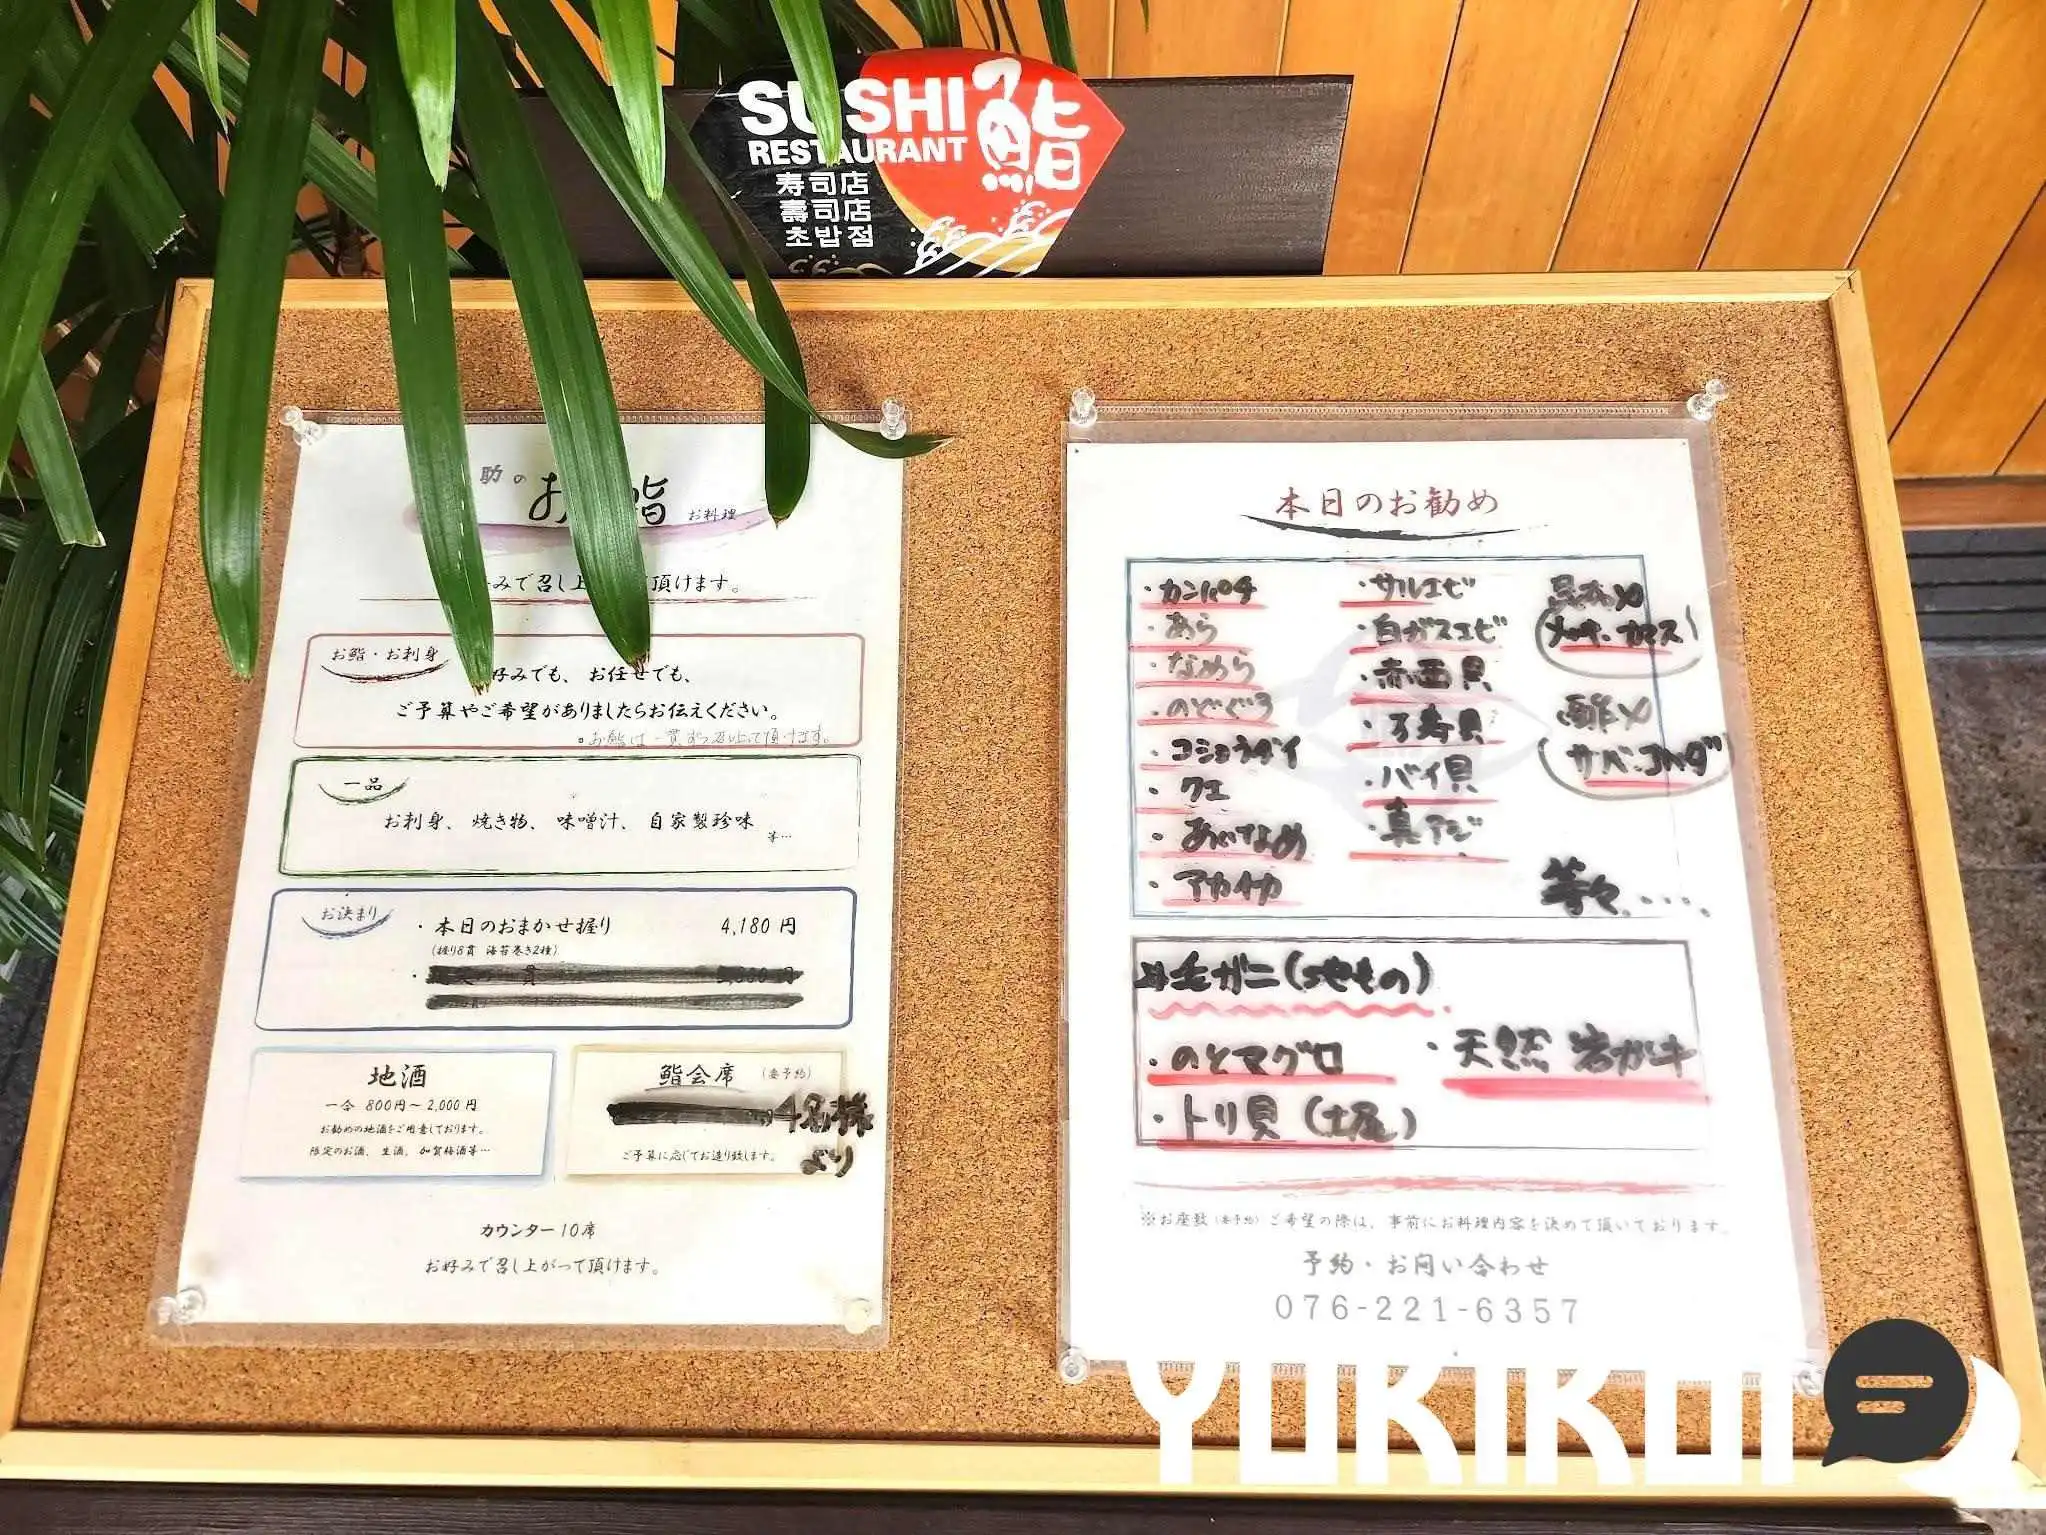 SUSHI
RESTAURANT
鮨
寿司店
壽司店
초밥점
助の
お 鮨 お料理
みで召し上 頂けます。
お鮨・お刺身
好みでも、お任せでも、
ご予算やご希望がありましたらお伝えください。
一品
お刺身、焼き物、味噌汁、自家製珍味
等…
お決まり
・本日のおまかせ握り 4,180円
(握り8貫 海苔巻き2種)
地酒
一合 800円～2,000円
お勧めの地酒をご用意しております。
限定のお酒、生酒、加賀梅酒等…
鮨会席 (要予約)
4名様
より
ご予算に応じてお造り致します。
カウンター10席
お好みで召し上がって頂けます。
本日のお勧め
・カンパチ
・あら
・なめら
・のどぐろ
・コショウダイ
・クエ
・あいなめ
・アカイカ
・サルエビ
・白ガスエビ
・赤西貝
・万寿貝
・バイ貝
・真アジ
昆布〆
酢〆
サバ・コハダ
等々.....
毛ガニ(地もの)
・のとマグロ
・天然 岩ガキ
・トリ貝(七尾)
※お座敷(要予約)ご希望の際は、事前にお料理内容を決めて頂いております。
予約・お問い合わせ
076-221-6357
YUKIKUI